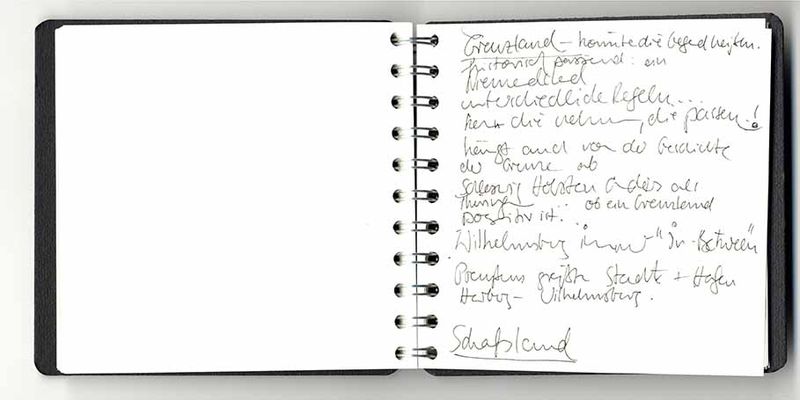 Grenzland – könnte die Gegend heißen.
historisch passend: ein
Niemandsland
unterschiedliche Regeln...
kann die nehmen, die passen!
hängt auch von der Geschichte
der Grenze ab
Schleswig Holstein anders als
Thüringen ... ob ein Grenzland
positiv ist...
Wilhelmsburg immer "In-Between"
Preußens größte Stadt + Hafen
Harburg – Wilhelmsburg.
Schafsland